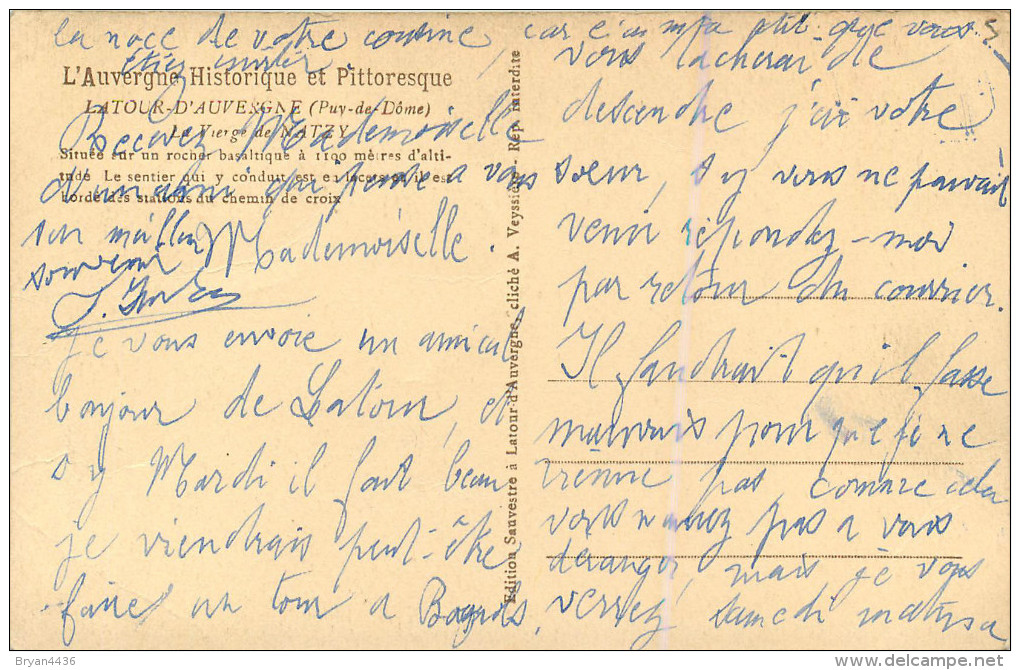 L'Auvergne Historique et Pittoresque
LATOUR-D'AUVERGNE (Puy-de-Dôme)
La Vierge de NATZY
Située sur un rocher basaltique à 1100 mètres d'alti-
tude Le sentier qui y conduit est en lacets et il est
bordé des stations du chemin de croix
Mademoiselle.
je vous envoie un amical
bonjour de Latour, et
s'y Mardi il fait beau
je viendrais peut-être
faire un tour a Bagnols,
vous tacherai de
descendre j'ai votre
soeur, s'y vous ne pouvait
venir répondez-moi
par retour du courrier.
Il faudrait qu'il fasse
mauvais pour que je ne
vienne pas, comme cela
vous n'aurez pas a vous
déranger, mais je vous
verrez samedi
la noce de votre cousine, car
vous
étiez
Recevez Mademoiselle
d'un ami qui pense a vous
son meilleur
souvenir
Edition Sauvestre à Latour-d'Auvergne, cliché A. Veyssière - Rep. interdite
Bryan4436
delcampe.net